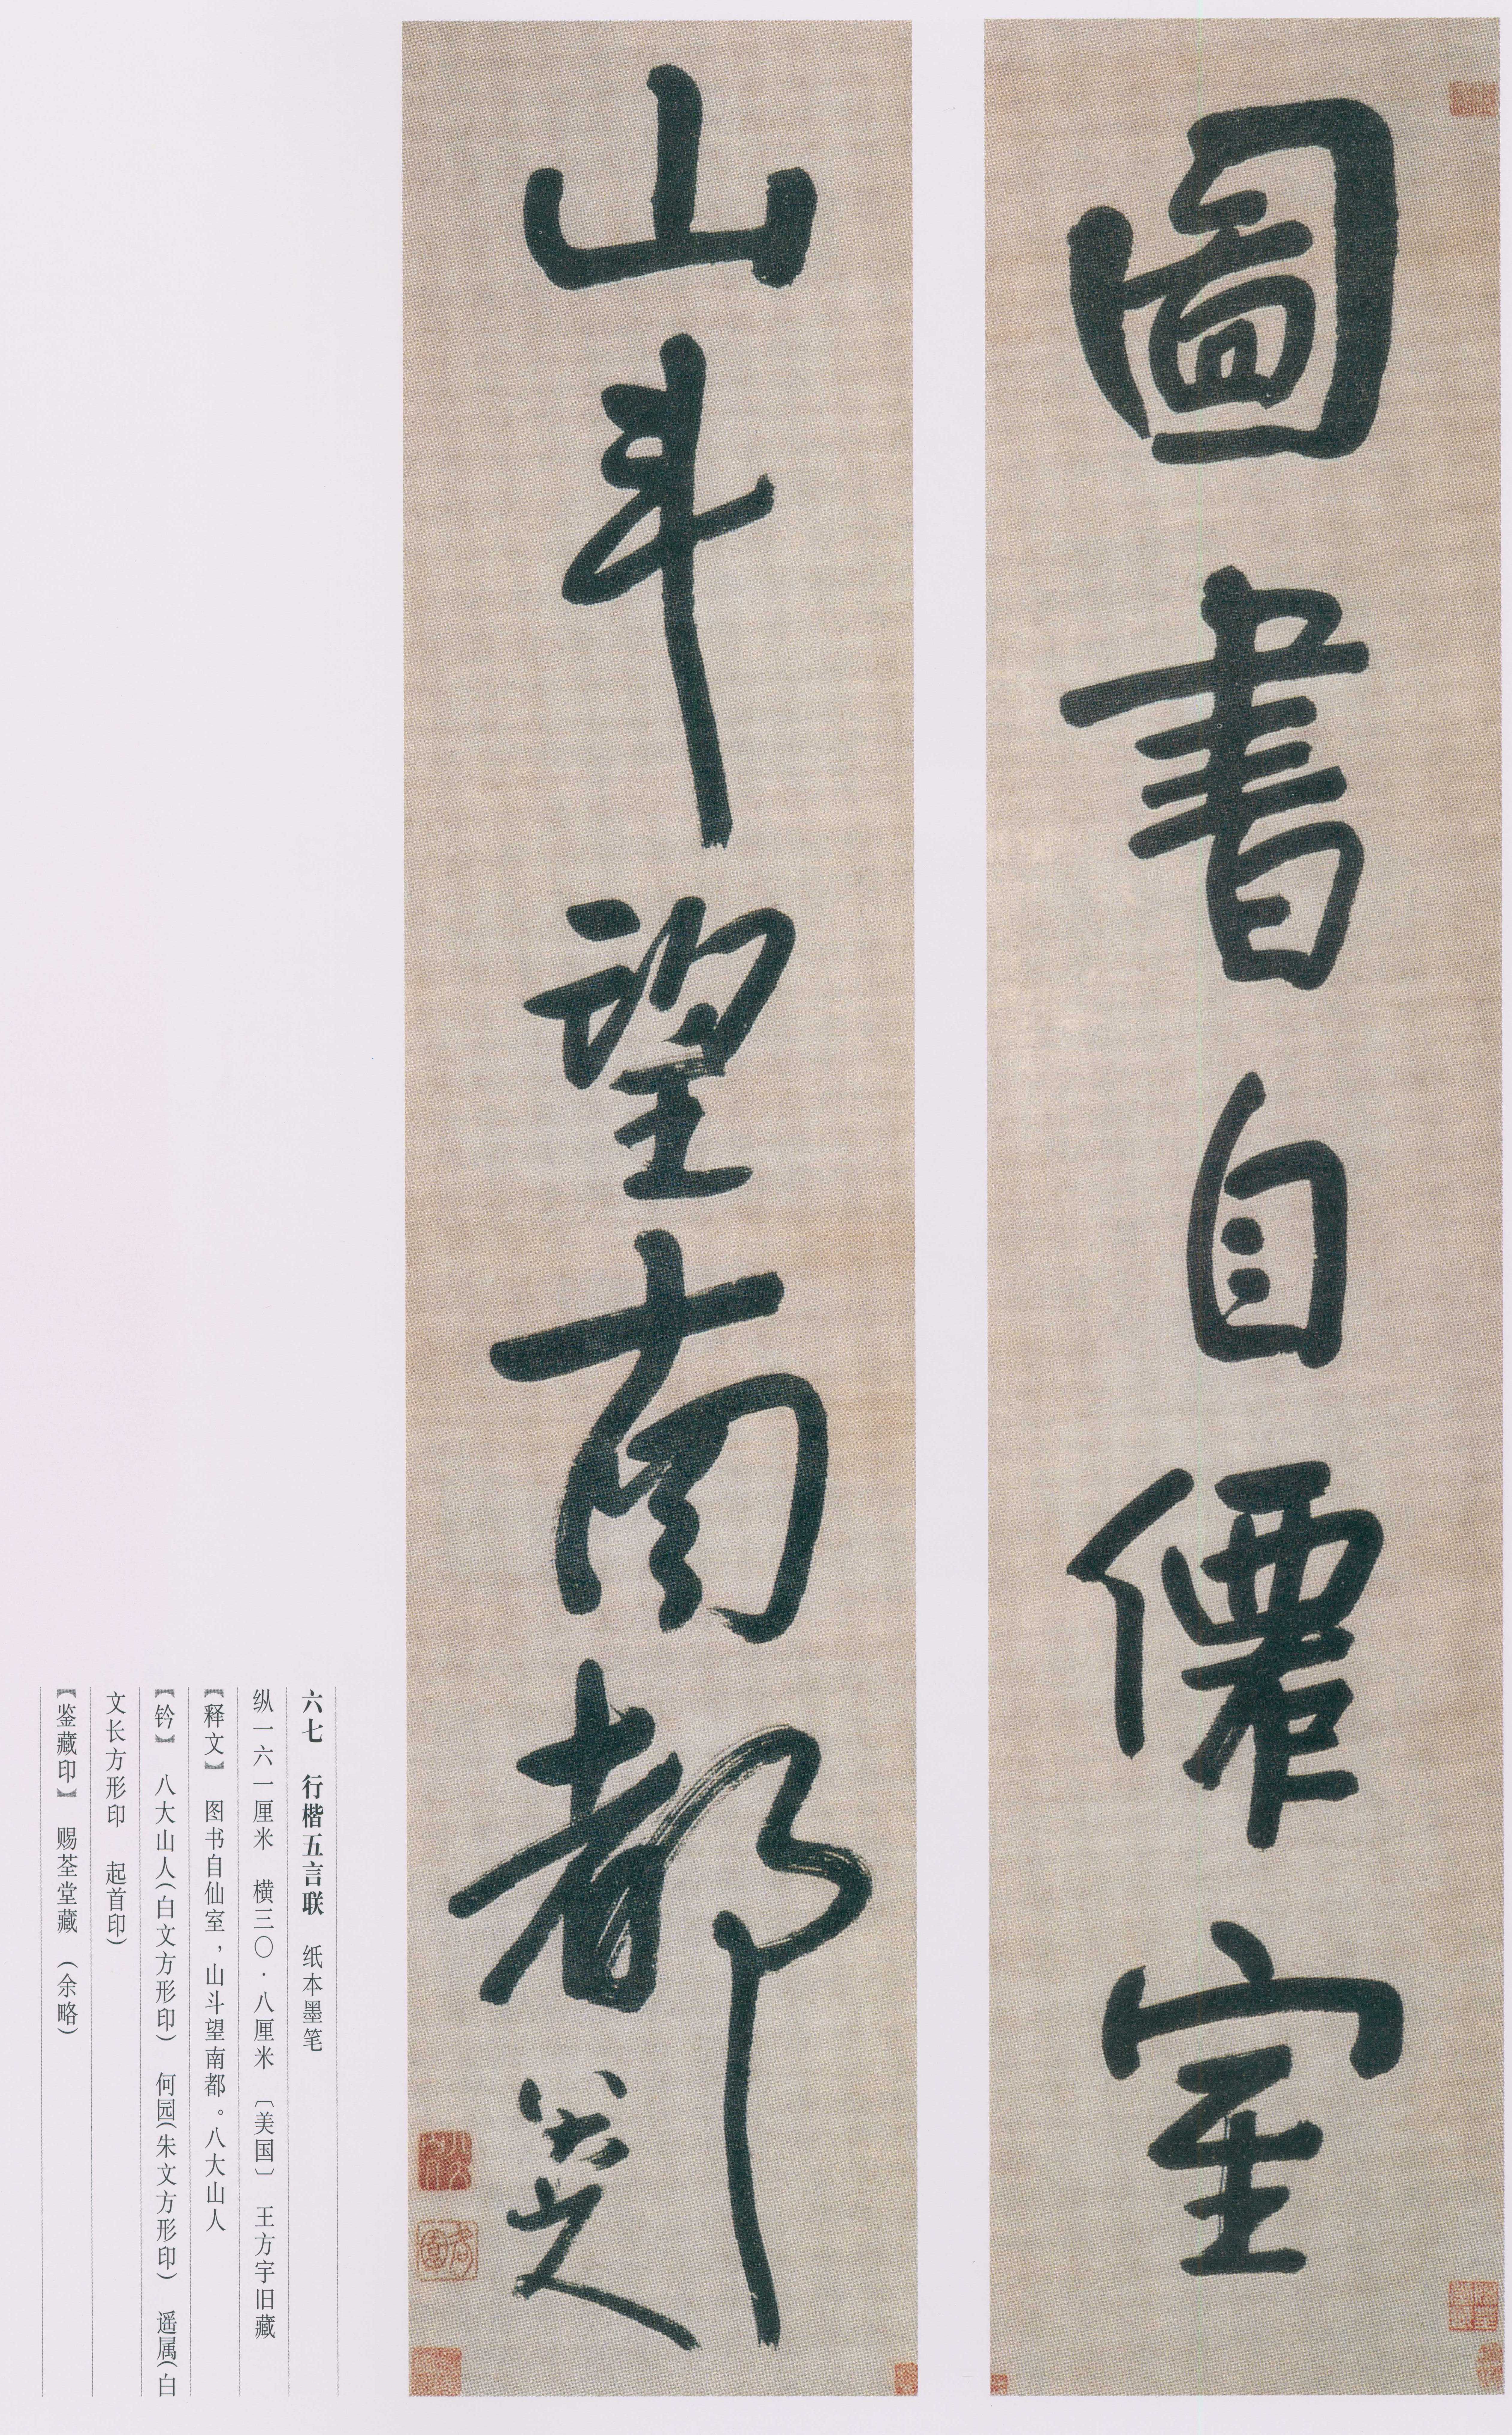 圖書自僊室
山斗望南都
八大山人
六七 行楷五言联 纸本墨笔
纵一六一厘米 横三〇·八厘米 〔美国〕 王方宇旧藏
【释文】 图书自仙室,山斗望南都。八大山人
【钤】 八大山人(白文方形印) 何园(朱文方形印) 遥属(白
文长方形印 起首印)
【鉴藏印】 赐荃堂藏 (余略)